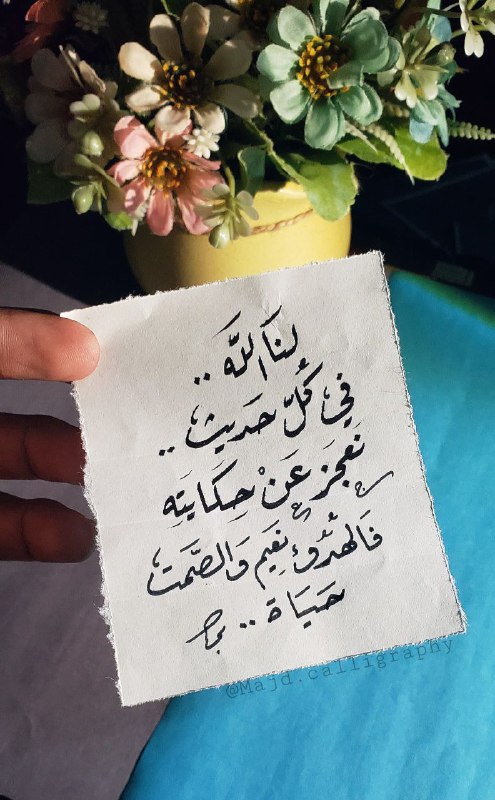 لنَا اللَّه ..
في كُلّ حَديث ..
نَعجَز عَنْ حِكَايَتِه
فَالهُدُوْء نِعَيم وَالصَّمت
حَيَاة ..
@Majd.calligraphy